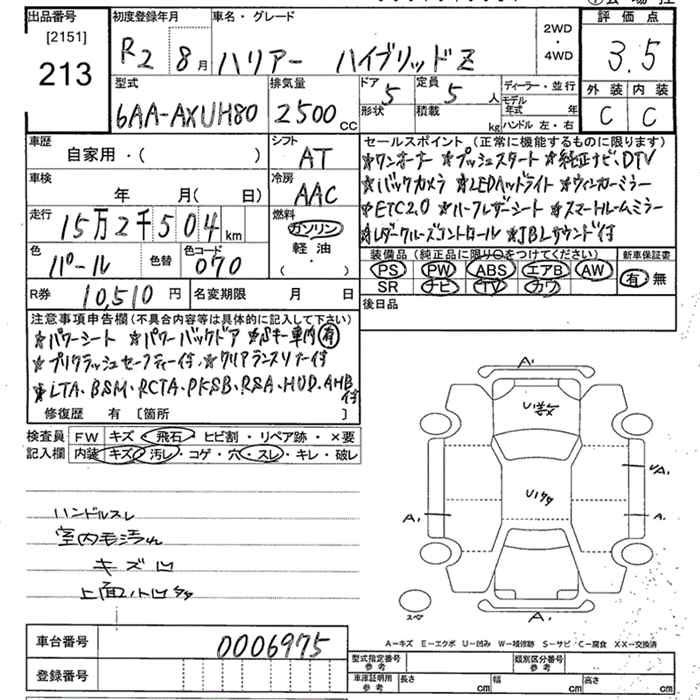 出品番号
[2151]
213
初度登録年月
R2 8月
車名・グレード
ハリアー ハイブリッドZ
2WD
・
4WD
評価点
3.5
外装 内装
C C
型式
6AA-AXUH80
排気量
2500cc
ドア 5
形状
定員 5人
積載 kg
ディーラー・並行
モデル年式 年
ハンドル 左・右
車歴
自家用・( )
シフト
AT
車検
年 月( 日)
冷房
AAC
走行
15万2千504km
燃料
ガソリン
軽油
( ・ )
色
パール
色替
色コード
070
R券 10,510円
名変期限 月 日
セールスポイント(正常に機能するものに限ります)
★ワンオーナー ★プッシュスタート ★純正ナビ、DTV
★バックカメラ ★LEDヘッドライト ★ウィンカーミラー
★ETC2.0 ★ハーフレザーシート ★スマートルームミラー
★レダクルーズコントロール ★JBLサウンド付
装備品(純正品に限り○をつけてください)
PS PW ABS エアB AW
SR ナビ TV カワ
新車保証書
有・無
後日品
注意事項申告欄(不具合内容等は具体的に記入して下さい)
★パワーシート ★パワーバックドア ★Sキー車内有
★プリクラッシュセーフティー付、★クリアランスソナー付
★LTA、BSM、RCTA、PKSB、RSA、HUD、AHB付
修復歴 有 [箇所 ]
検査員記入欄
FW キズ・飛石・ヒビ割・リペア跡・×要
内装 キズ・汚レ・コゲ・穴・スレ・キレ・破レ
ハンドルスレ
室内毛汚れ
キズ凹
上面小凹多
A'
U'
U'
A'
A'
A'
スペア
A－キズ E－エクボ U－凹み W－補修跡 S－サビ C－腐食 XX－交換済
車台番号 0006975
登録番号
型式指定番号参考
類別区分番号参考
車庫証明用参考
長さ cm
幅 cm
高さ cm